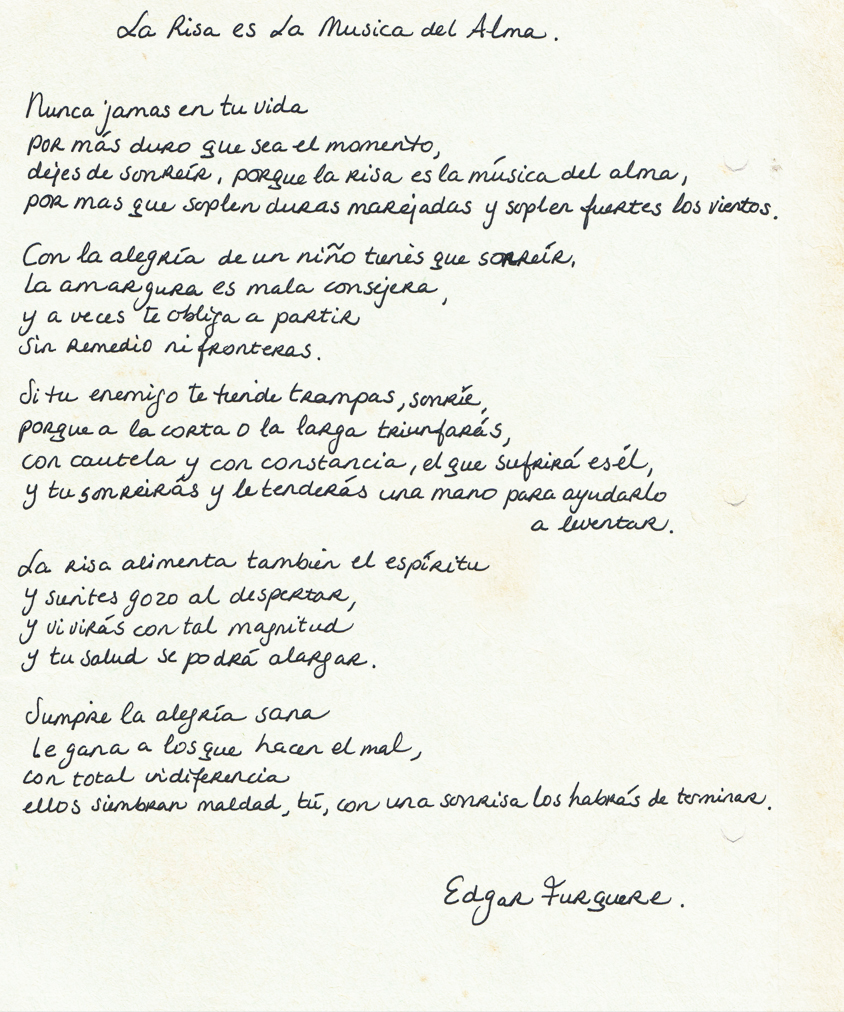 La Risa es La Musica del Alma.
Nunca jamas en tu vida
por más duro que sea el momento,
dejes de sonreír, porque la risa es la música del alma,
por mas que soplen duras marejadas y soplen fuertes los vientos.
Con la alegría de un niño tienes que sonreír.
La amargura es mala consejera,
y a veces te obliga a partir
sin remedio ni fronteras.
Si tu enemigo te tiende trampas, sonríe,
porque a la corta o la larga triunfarás,
con cautela y con constancia, el que sufrirá es él,
y tu sonreirás y le tenderás una mano para ayudarlo
a levantar.
La risa alimenta también el espíritu
y sientes gozo al despertar,
y vivirás con tal magnitud
y tu salud se podrá alargar.
Siempre la alegría sana
Le gana a los que hacen el mal,
con total indiferencia
ellos siembran maldad, tú, con una sonrisa los habrás de terminar.
Edgar Furguere.